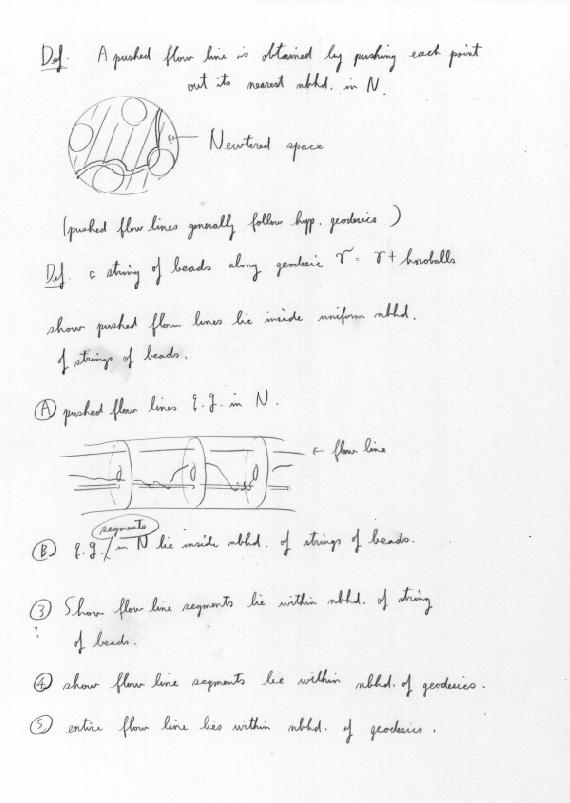 Def. A pushed flow line is obtained by pushing each point
out its nearest nbhd. in N.
Neutered space
(pushed flow lines generally follow hyp. geodesics)
Def. a string of beads along geodesic γ = γ + horoballs
show pushed flow lines lie inside uniform nbhd.
of strings of beads.
Ⓐ pushed flow lines q.g. in N.
← flow line
segments
Ⓑ q.g./ in N lie inside nbhd. of strings of beads.
③ Show flow line segments lie within nbhd. of string
⋮ of beads.
④ show flow line segments lie within nbhd. of geodesics.
⑤ entire flow line lies within nbhd. of geodesics.